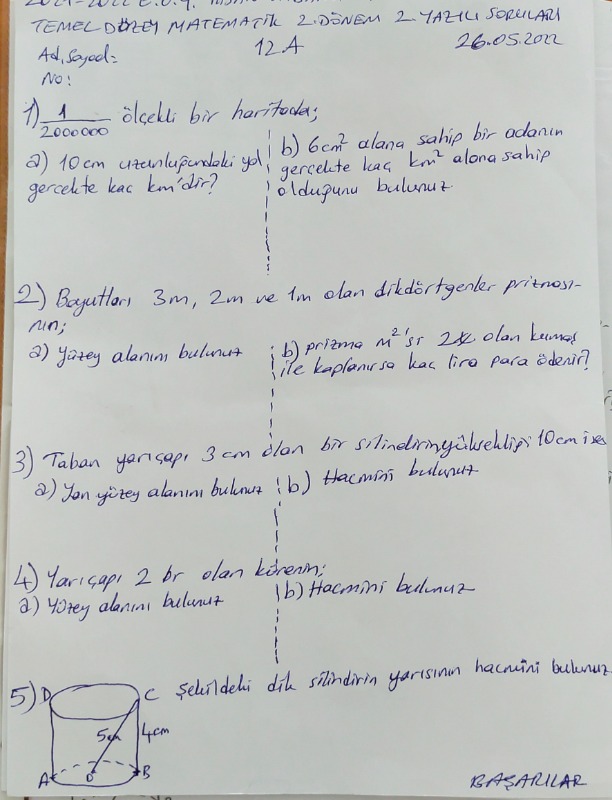 TEMEL DÜZEY MATEMATİK 2.DÖNEM 2.YAZILI SORULARI
Ad, Soyad=
12.A
26.05.2022
No:
1) 1/2000000 ölçekli bir haritada;
a) 10 cm uzunluğundaki yol
gerçekte kaç km'dir?
b) 6cm² alana sahip bir adanın
gerçekte kaç km² alana sahip
olduğunu bulunuz.
2) Boyutları 3m, 2m ve 1m olan dikdörtgenler prizması-
nın;
a) Yüzey alanını bulunuz
b) prizma m²'si olan kumaş
ile kaplanırsa kaç lira para ödenir?
3) Taban yarıçapı 3 cm olan bir silindirin yüksekliği 10cm ise
a) Yan yüzey alanını bulunuz
b) Hacmini bulunuz
4) Yarıçapı 2 br olan kürenin;
a) Yüzey alanını bulunuz
b) Hacmini bulunuz
5) Şekildeki dik silindirin yarısının hacmini bulunuz
D C
5cm 4cm
A O B
BAŞARILAR